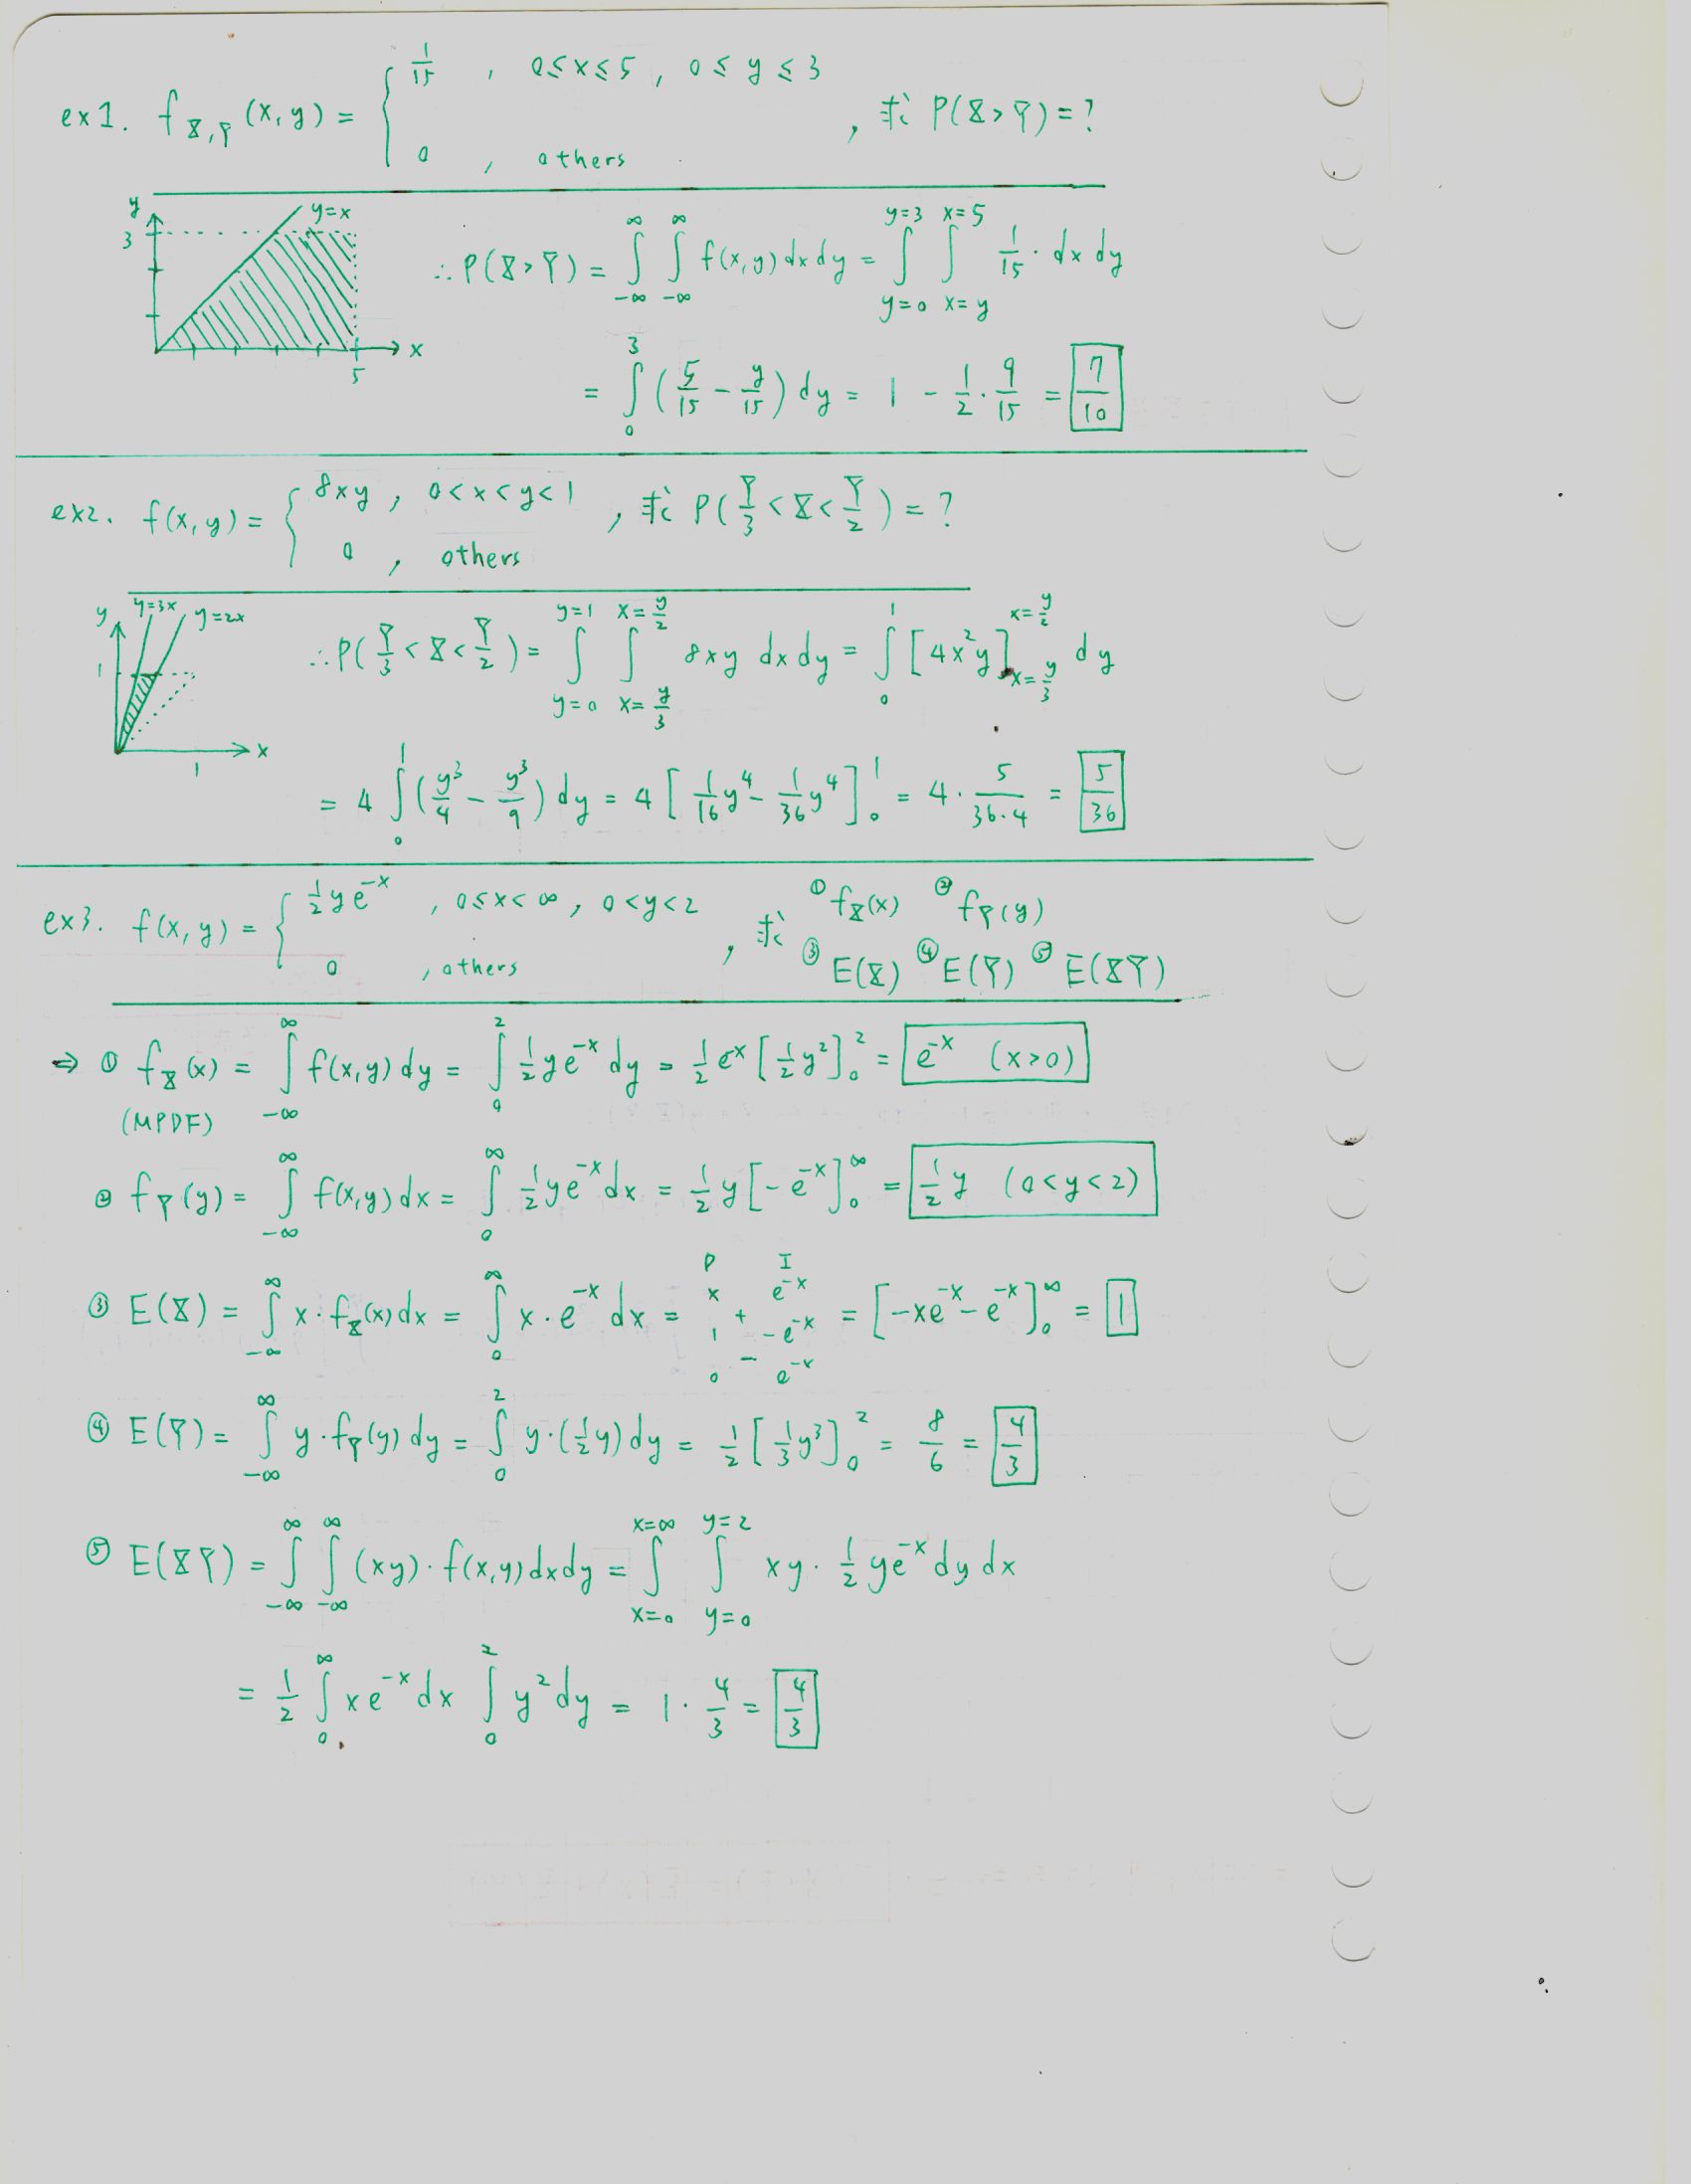 ex1. f_{X,Y}(x,y) = { 1/15 , 0≤x≤5, 0≤y≤3 ; 0 , others , 求 P(X>Y)=?
y 3 y=x 5 x
∴P(X>Y) = ∫_{-∞}^{∞} ∫_{-∞}^{∞} f(x,y)dxdy = ∫_{y=0}^{y=3} ∫_{x=y}^{x=5} 1/15 · dxdy
= ∫_0^3 (5/15 - y/15) dy = 1 - 1/2 · 9/15 = 7/10
ex2. f(x,y) = { 8xy , 0<x<y<1 ; 0 , others , 求 P(Y/3 < X < Y/2) = ?
y y=3x y=2x 1 1 x
∴P(Y/3 < X < Y/2) = ∫_{y=0}^{y=1} ∫_{x=y/3}^{x=y/2} 8xy dxdy = ∫_0^1 [4x²y]_{x=y/3}^{x=y/2} dy
= 4 ∫_0^1 (y³/4 - y³/9) dy = 4 [1/16 y⁴ - 1/36 y⁴]_0^1 = 4 · 5/(36·4) = 5/36
ex3. f(x,y) = { 1/2 ye^{-x} , 0≤x<∞, 0<y<2 ; 0 , others , 求 ① f_X(x) ② f_Y(y)
③ E(X) ④ E(Y) ⑤ E(XY)
⇒ ① f_X(x) = ∫_{-∞}^{∞} f(x,y)dy = ∫_0^2 1/2 ye^{-x} dy = 1/2 e^{-x} [1/2 y²]_0^2 = e^{-x} (x>0)
(MPDF)
② f_Y(y) = ∫_{-∞}^{∞} f(x,y)dx = ∫_0^∞ 1/2 ye^{-x} dx = 1/2 y[-e^{-x}]_0^∞ = 1/2 y (0<y<2)
③ E(X) = ∫_{-∞}^{∞} x·f_X(x)dx = ∫_0^∞ x·e^{-x} dx = D I x e^{-x} + 1 -e^{-x} - 0 e^{-x} = [-xe^{-x} - e^{-x}]_0^∞ = 1
④ E(Y) = ∫_{-∞}^{∞} y·f_Y(y)dy = ∫_0^2 y·(1/2 y)dy = 1/2 [1/3 y³]_0^2 = 8/6 = 4/3
⑤ E(XY) = ∫_{-∞}^{∞} ∫_{-∞}^{∞} (xy)·f(x,y)dxdy = ∫_{x=0}^{x=∞} ∫_{y=0}^{y=2} xy · 1/2 ye^{-x} dy dx
= 1/2 ∫_0^∞ xe^{-x}dx ∫_0^2 y²dy = 1 · 4/3 = 4/3